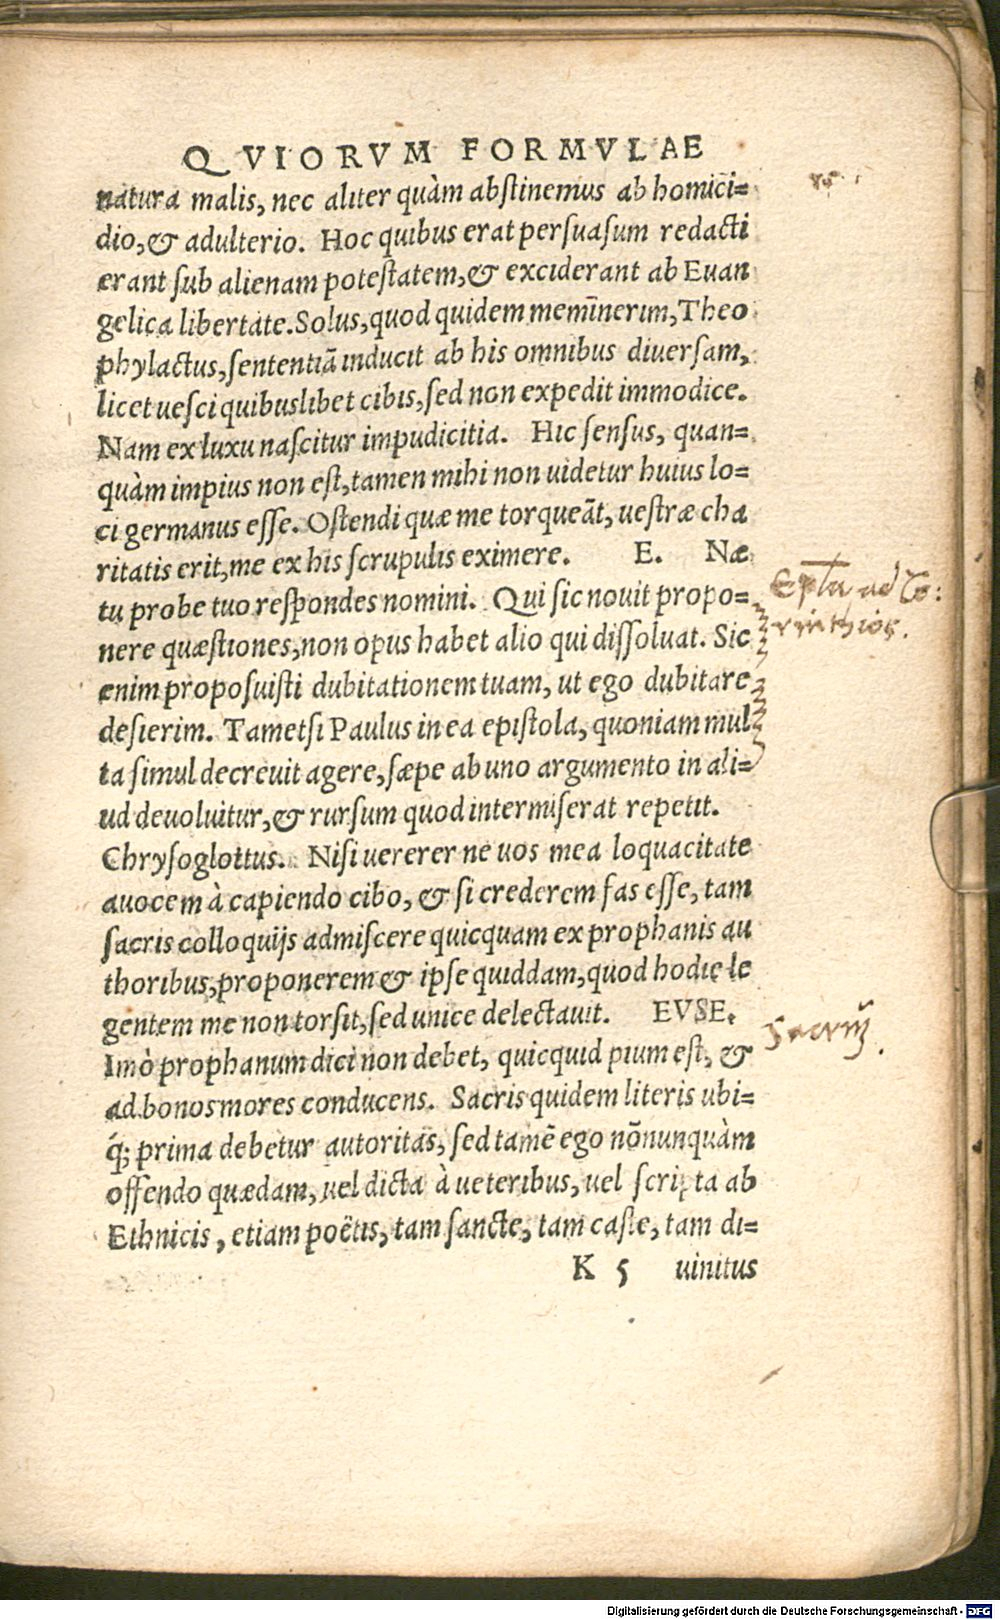 QVIORVM FORMVLAE
natura malis, nec aliter quàm abstinemus ab homici=
dio, & adulterio. Hoc quibus erat persuasum redacti
erant sub alienam potestatem, & exciderant ab Euan
gelica libertate. Solus, quod quidem memīnerim, Theo
phylactus, sententiā inducit ab his omnibus diuersam,
licet uesci quibuslibet cibis, sed non expedit immodice.
Nam ex luxu nascitur impudicitia. Hic sensus, quan=
quàm impius non est, tamen mihi non uidetur huius lo=
ci germanus esse. Ostendi quæ me torqueāt, uestræ cha
ritatis erit, me ex his scrupulis eximere. E. Næ
tu probe tuo respondes nomini. Qui sic nouit propo=
nere quæstiones, non opus habet alio qui dissoluat. Sic
enim proposuisti dubitationem tuam, ut ego dubitare
desierim. Tametsi Paulus in ea epistola, quoniam mul
ta simul decreuit agere, sæpe ab uno argumento in ali=
ud deuoluitur, & rursum quod intermiserat repetit.
Chrysoglottus. Nisi uererer ne uos mea loquacitate
auocem à capiendo cibo, & si crederem fas esse, tam
sacris colloquijs admiscere quicquam ex prophanis au
thoribus, proponerem & ipse quiddam, quod hodie le
gentem me non torsit, sed unice delectauit. EVSE.
Imò prophanum dici non debet, quicquid pium est, &
ad bonos mores conducens. Sacris quidem literis ubi=
q́; prima debetur autoritas, sed tamē ego nōnunquàm
offendo quædam, uel dicta à ueteribus, uel scripta ab
Ethnicis, etiam poëtis, tam sancte, tam caste, tam di=
K 5 uinitus
Epła ad Co:
rinthios.
Sacrum
Digitalisierung gefördert durch die Deutsche Forschungsgemeinschaft - DFG